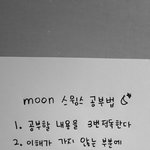 moon 스윔스 공부법
1. 공부할 내용을 3번정독한다
2. 이해가 가지 않는 부분에